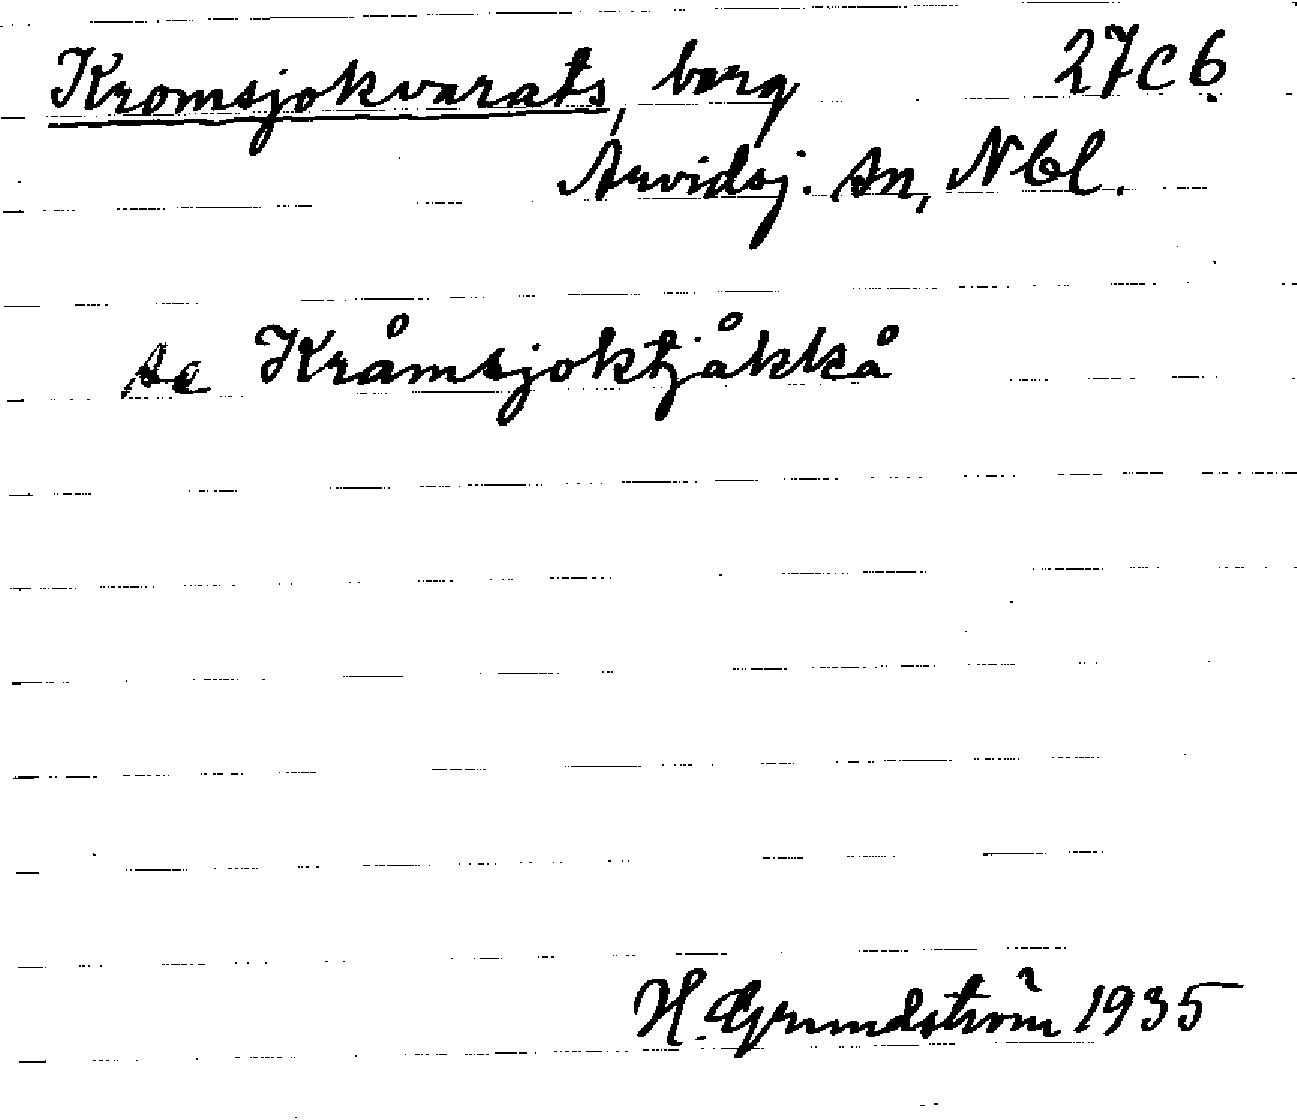 Kromsjokvarats, berg 27C6
Arvidsj. sn, Nbl.
se Kråmsjoktjåkkå
H. Grundström 1935